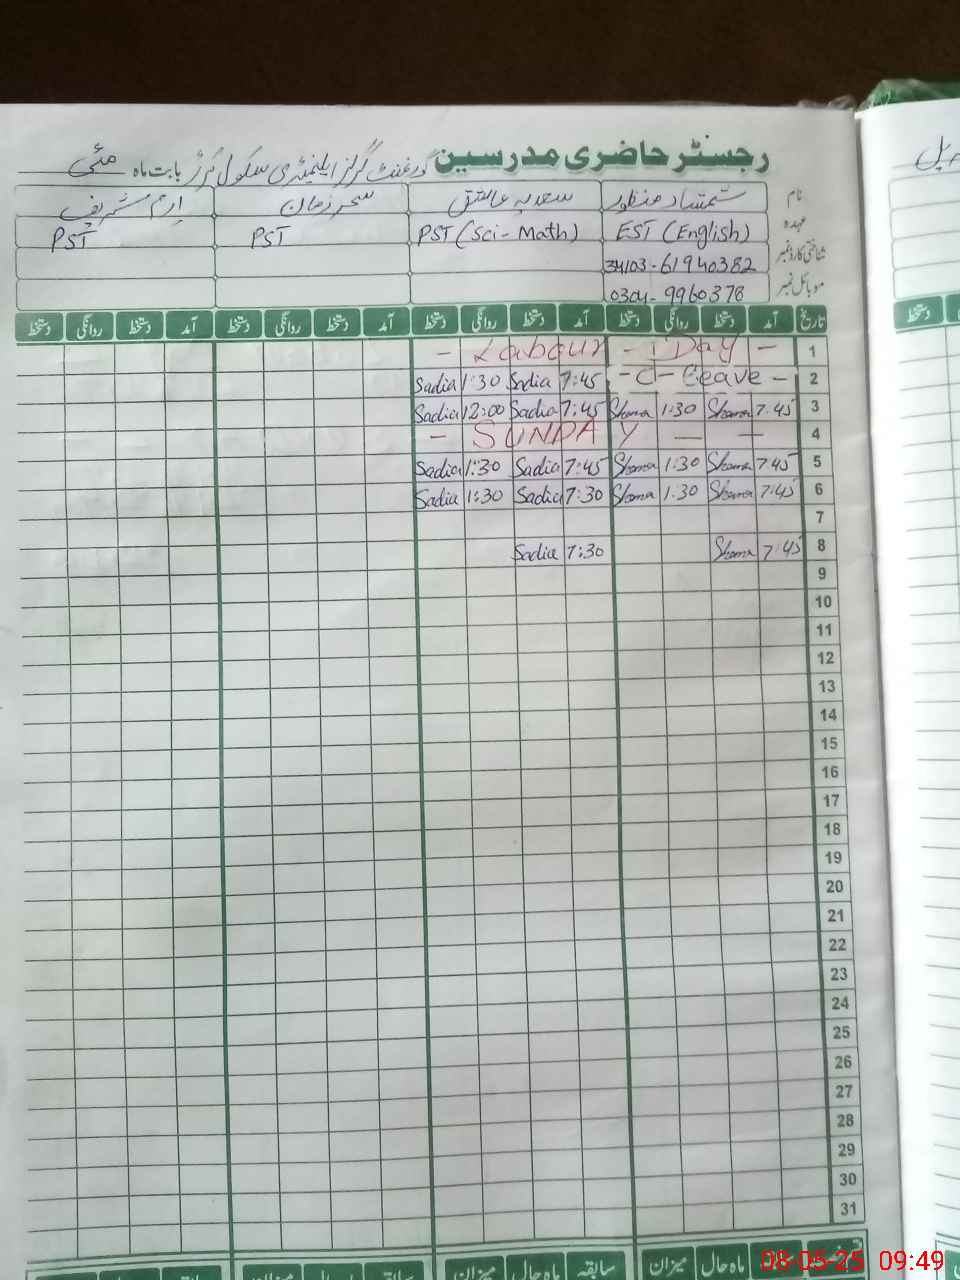 رجسٹر حاضری مدرسین گورنمنٹ گرلز ایلیمنٹری سکول بابت ماہ مئی
نام شمشاد منظور سعدیہ عاشق سحر زمان ارم شریف
عہدہ EST (English) PST (Sci-Math) PST PST
شناختی کارڈ نمبر 34103-61940382
موبائل نمبر 0304-9960378
تاریخ آمد دستخط روانگی دستخط آمد دستخط روانگی دستخط آمد دستخط روانگی دستخط آمد دستخط روانگی دستخط
- Labour - Day - 1
Sadia 1:30 Sadia 7:45 - C - Leave - 2
Sadia 12:00 Sadia 7:45 Shama 1:30 Shama 7:45 3
- SUNDAY - - 4
Sadia 1:30 Sadia 7:45 Shama 1:30 Shama 7:45 5
Sadia 1:30 Sadia 7:30 Shama 1:30 Shama 7:45 6
7
Sadia 7:30 Shama 7:45 8
9
10
11
12
13
14
15
16
17
18
19
20
21
22
23
24
25
26
27
28
29
30
31
ماہ حال میزان سابقہ ماہ حال میزان
08-05-25 09:49